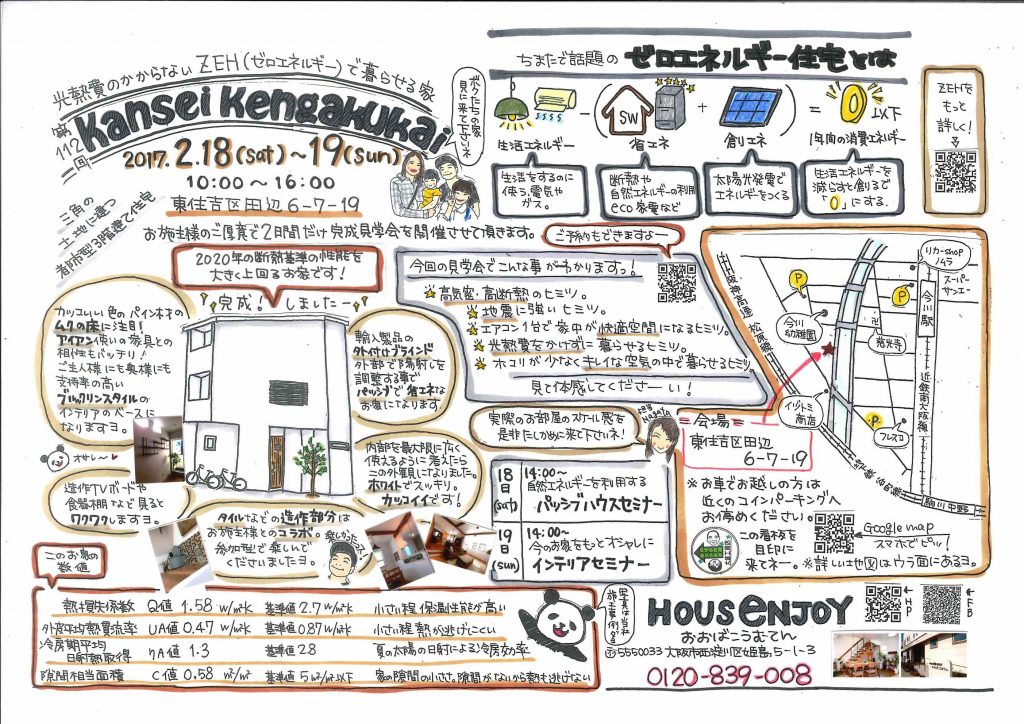 光熱費のかからないZEH(ゼロエネルギー)で暮らせる家
第112回
Kansei Kengakukai
2017. 2.18(sat)～19(sun)
10:00～16:00
東住吉区田辺6-7-19
三角の
土地に建つ
都市型3階建て住宅
ボクたちの家
見に来て下さいネ
お施主様のご厚意で2日間だけ完成見学会を開催させて頂きます。
ちまたで話題のゼロエネルギー住宅とは
生活エネルギー
－
SW
省エネ
+
創エネ
=
0以下
1年間の消費エネルギー
生活をするのに
使う、電気や
ガス。
断熱や
自然エネルギーの利用
eco家電など
太陽光発電で
エネルギーをつくる
生活エネルギーを
減らすと創るで
「0」にする。
ZEHを
もっと
詳しく!
2020年の断熱基準の性能を
大きく上回るお家です!
完成!しましたー
ご予約もできますよー
今回の見学会でこんな事がわかりますっ!
高気密・高断熱のヒミツ。
地震に強いヒミツ。
エアコン1台で家中が快適空間になるヒミツ。
光熱費をかけずに暮らせるヒミツ。
ホコリが少なくキレイな空気の中で暮らせるヒミツ
見て体感してくださーい!
カッコいい色のパイン材の
ムクの床に注目!
アイアン使いの家具との
相性もバッチリ!
ご主人様にも奥様にも
支持率の高い
ブルックリンスタイルの
インテリアのベースに
なりますヨ。
オサレ～
造作TVボードや
食器棚など見ると
ワクワクしますヨ。
輸入製品の
外付けブラインド
外部で陽射しを
調整する事で
パッシブで省エネな
お家になります。
内部を最大限に広く
使えるように考えたら
この外観になりました。
ホワイトでスッキリ。
カッコイイです!
タイルなどの造作部分は
お施主様とのコラボ。
参加型で楽しんで
くださいましたヨ。
楽しかったネー
実際のお部屋のスケール感を
是非たしかめに来て下さいネ!
担当Nagata
18日(sat)
14:00～
自然エネルギーを利用する
パッシブハウスセミナー
19日(sun)
14:00～
今のお家をもっとオシャレに
インテリアセミナー
阪神高速 松原線
今川幼稚園
リカーshopノムラ
スーパーサンエー
今川駅
近鉄南大阪線
イヅトミ商店
フレスコ
駒川中野
P
P
P
=会場=
東住吉区田辺
6-7-19
※お車でお越しの方は
近くのコインパーキングへ
お停めください。
この看板を
目印に
来てネー。
Google map
スマホでピッ!
※詳しい地図はウラ面にあるヨ。
このお家の
数値
熱損失係数 Q値 1.58 w/㎡k 基準値2.7w/㎡k 小さい程 保温性能が高い
外皮平均熱貫流率 UA値 0.47 w/㎡k 基準値0.87w/㎡k 小さい程 熱が逃げにくい
冷房期平均
日射熱取得 ηA値 1.3 基準値2.8 夏の太陽の日射による冷房効率
隙間相当面積 C値 0.58 c㎡/㎡ 基準値5c㎡/㎡以下 家の隙間の小ささ。隙間がないから熱も逃げない
写真は当社
施工事例多
HOUSENJOY
おおばこうむてん
〒5550033 大阪市西淀川区姫島5-1-3
0120-839-008
HP
FB